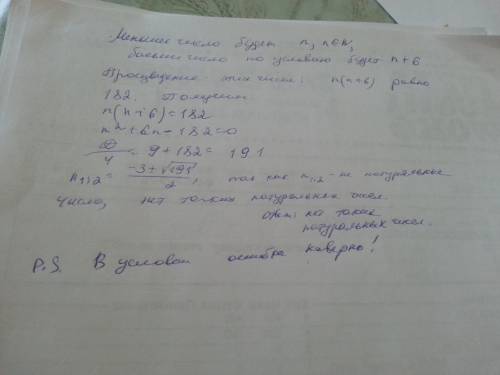 Меньшее число будет n, n∈N,
большее число по условию будет n+6
Произведение этих чисел: n(n+6) равно
182. Получим
n(n+6)=182
n²+6n-182=0
D/4 = 9+182=191
n₁,₂= (-3±√191)/2, так как n₁,₂-не натуральные
числа, нет таких натуральных чисел.
Ответ: нет таких
натуральных чисел.
P.S. В условии ошибка наверно!